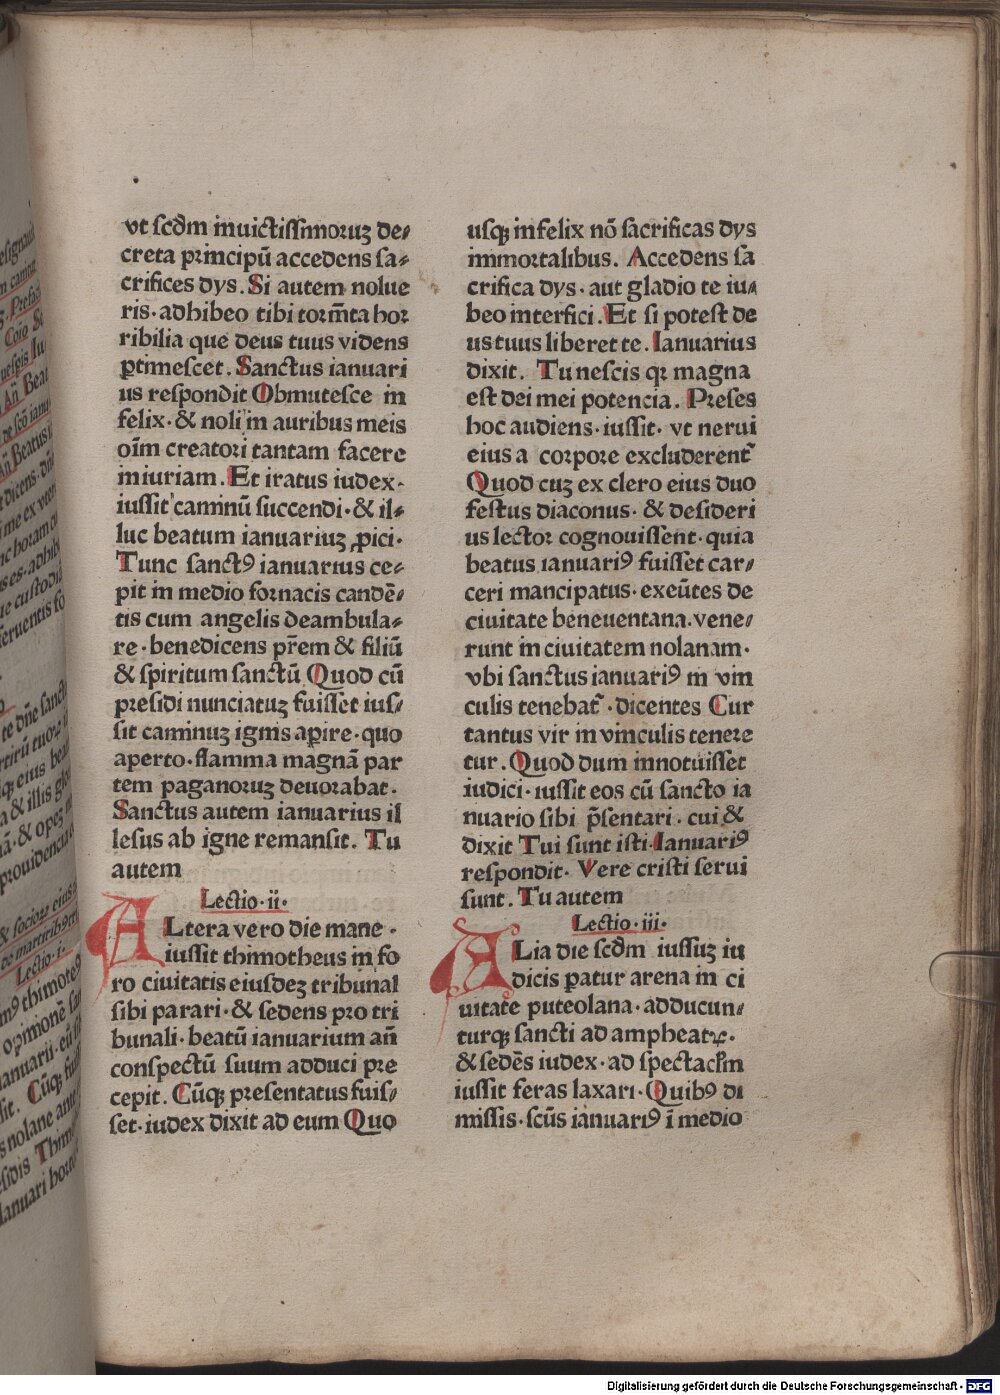 vt scḋm inuictissimoruꝫ de⸗
creta principū accedens sa⸗
crifices dys. Si autem nolue
ris·adhibeo tibi torm̄ta hor
ribilia que deus tuus videns
ꝑtimescet. Sanctus ianuari
us respondit Obmutesce in
felix·& noli in auribus meis
oīm creatori tantam facere
iniuriam. Et iratus iudex·
iussit caminū succendi·& il⸗
luc beatum ianuariuꝫ ꝓici·
Tunc sanctꝰ ianuarius ce⸗
pit in medio fornacis candē⸗
tis cum angelis deambula⸗
re·benedicens pr̄em & filiū
& spiritum sanctū Quod cū
presidi nunciatuꝫ fuisset ius⸗
sit caminuꝫ ignis aꝑire·quo
aperto·flamma magnā par
tem paganoruꝫ deuorabat·
Sanctus autem ianuarius il
lesus ab igne remansit. Tu
autem
Lectio·ii·
ALtera vero die mane·
iussit thimotheus in fo
ro ciuitatis eiusdeꝫ tribunal
sibi parari·& sedens pro tri
bunali·beatū ianuarium añ
conspectū suum adduci pre
cepit. Cūqꝫ presentatus fuis⸗
set·iudex dixit ad eum Quo
usqꝫ infelix nō sacrificas dys
immortalibus. Accedens sa
crifica dys·aut gladio te iu⸗
beo interfici. Et si potest de
us tuus liberet te. Ianuarius
dixit. Tu nescis qꝛ magna
est dei mei potencia. Preses
hoc audiens·iussit·vt nerui
eius a corpore excluderent᷑
Quod cuꝫ ex clero eius duo
festus diaconus·& desideri
us lector cognouissent·quia
beatus ianuariꝰ fuisset car⸗
ceri mancipatus·exeūtes de
ciuitate beneuentana·vene⸗
runt in ciuitatem nolanam·
vbi sanctus ianuariꝰ in vin
culis tenebat᷑·dicentes Cur
tantus vir in vinculis tenere
tur. Quod dum innotuisset
iudici·iussit eos cū sancto ia
nuario sibi p̄sentari·cui &
dixit Tui sunt isti·Ianuariꝰ
respondit·Vere cristi serui
sunt. Tu autem
Lectio·iii·
ALia die scḋm iussuꝫ iu
dicis ꝑatur arena in ci
uitate puteolana·adducun⸗
turqꝫ sancti ad ampheatꝝ·
& sedēs iudex·ad spectacl̄m
iussit feras laxari·Quibꝰ di
missis·scūs ianuariꝰ ī medio
Digitalisierung gefördert durch die Deutsche Forschungsgemeinschaft - DFG